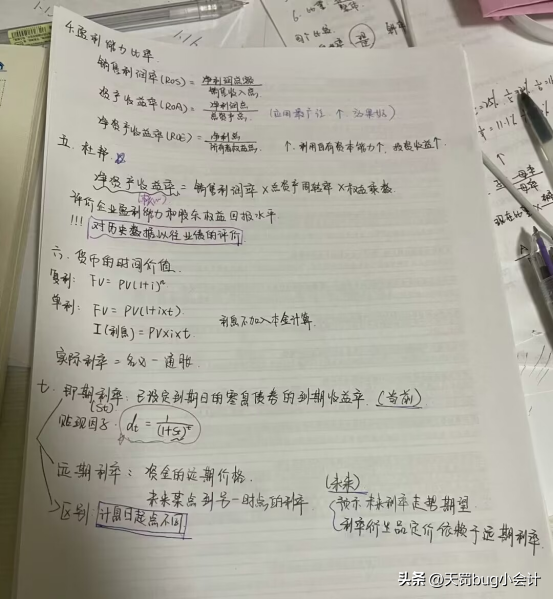 4.盈利能力比率
销售利润率(ROS) = 净利润总额/销售收入总
资产收益率(ROA) = 净利润总/总资产总 (应用资产 ↑ 效果好)
净资产收益率(ROE) = 净利总/所有者权益总 ↑ 利用自有资本能力↑ 投资收益↑
五、杜邦
净资产收益率 = 销售利润率 × 总资产周转率 × 权益乘数
评价企业盈利能力和股东权益回报水平
!!! 对历史数据以往业绩的评价
六、货币的时间价值
复利: FV = PV(1+i)ⁿ
单利: FV = PV(1+i×t)
I(利息) = PV×i×t 利息不加入本金计算
实际利率 = 名义 - 通胀
七. 即期利率: 已设定到期日的零息债券的到期收益率 (当前)
(St)
贴现因子 dt = 1/(1+St)^t
远期利率: 资金的远期价格 (未来)
未来某点到另一时点的利率 预示未来利率走势期望
区别 计息日起点不同 利率衍生品定价依赖于远期利率
头条 @天罚bug小会计